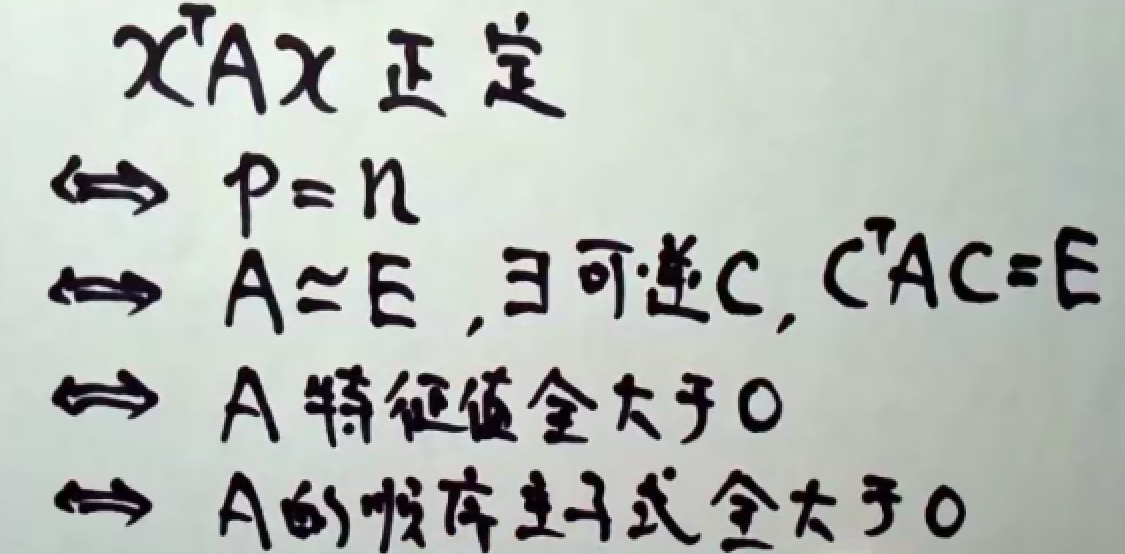 xᵀAx 正定
⇔ p=n
⇔ A≃E ,∃可逆C, CᵀAC=E
⇔ A特征值全大于0
⇔ A的顺序主子式全大于0